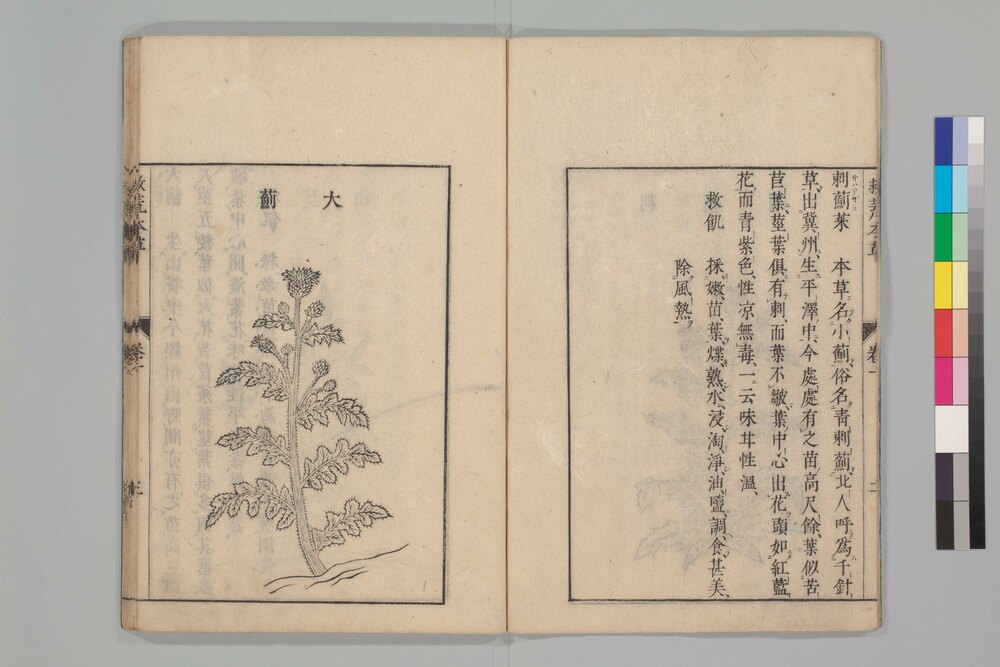 刺薊菜　本草名小薊俗名青刺薊北人呼爲千針
草出冀州生平澤中今處處有之苗高尺餘葉似苦
苣葉莖葉俱有刺而葉不皺葉中心出花頭如紅藍
花而青紫色性凉無毒一云味甘性溫
救飢　採嫩苗葉煠熟水浸淘淨油鹽調食甚美
除風熱
大
薊
救荒本草
卷一